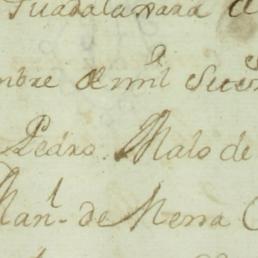 Guadalaxara
mbre de mil Sete
Pedro Malo de
Man.l de Mena